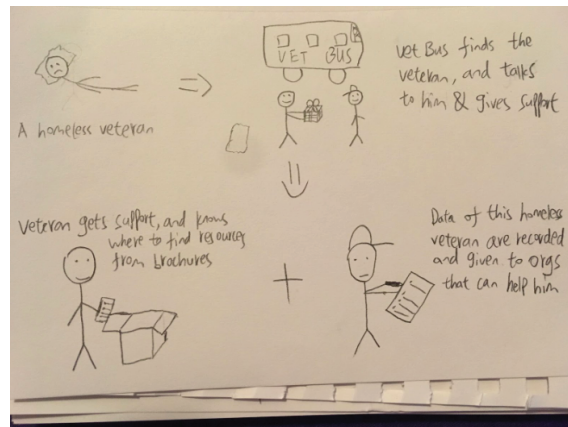 A homeless veteran
VET BUS
vet Bus finds the
veteran, and talks
to him & gives support
Veteran gets support, and knows
where to find resources
from brochures
Data of this homeless
veteran are recorded
and given to orgs
that can help him